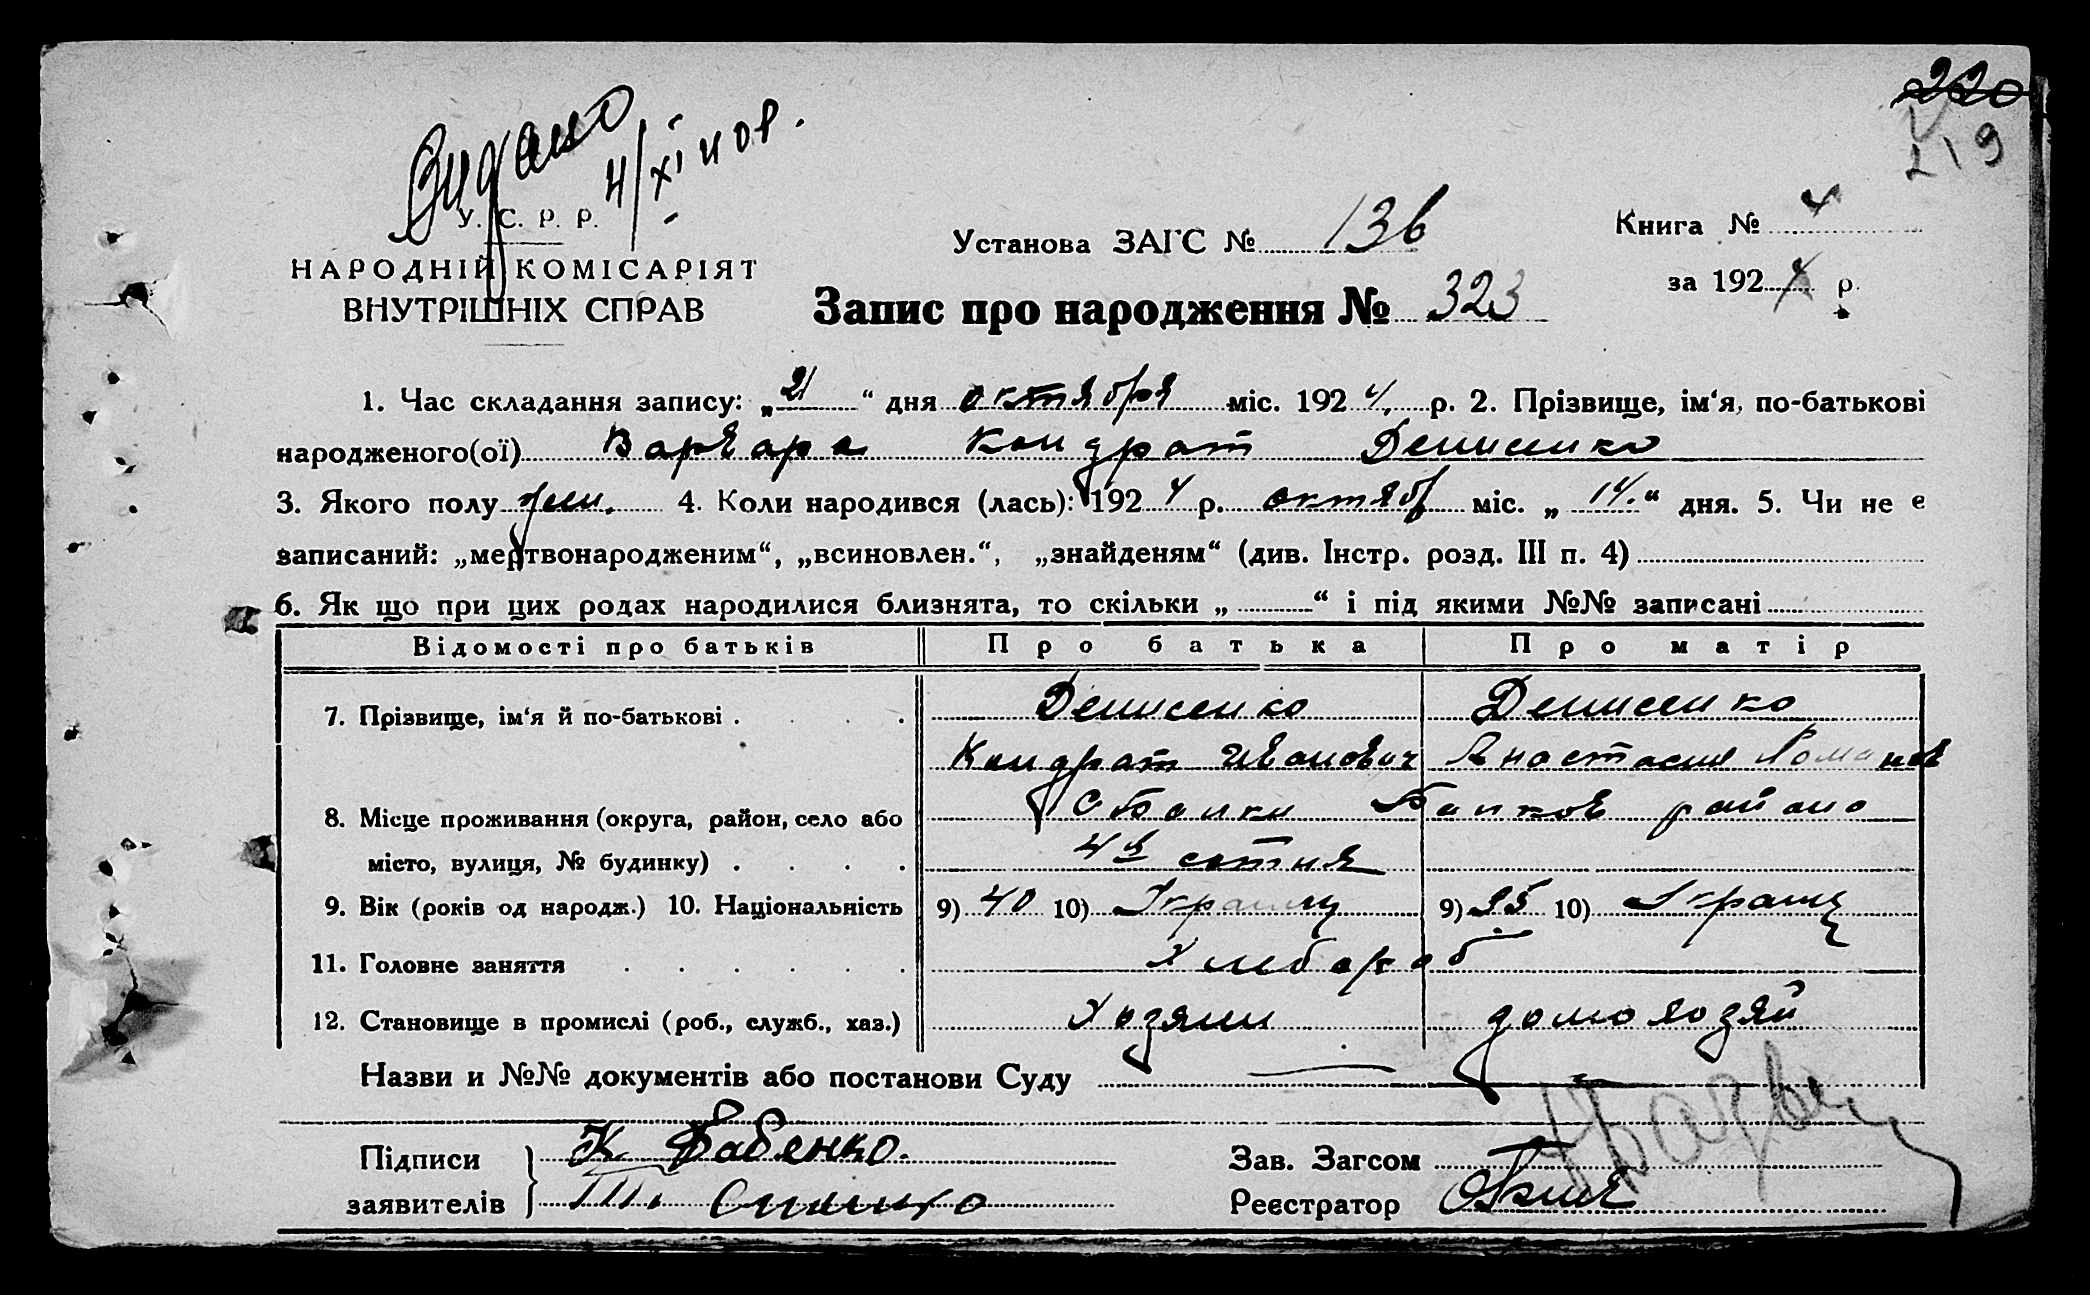 220
219
Видано
4/XI нов.
У. С. Р. Р.
НАРОДНІЙ КОМІСАРІЯТ
ВНУТРІШНІХ СПРАВ
Установа ЗАГС № 136
Книга № 4
за 1924 р.
Запис про народження № 323
1. Час складання запису: „21“ дня октября міс. 1924 р. 2. Прізвище, ім‘я, по-батькові
народженого(ої) Варвара Кондрат Денисенко
3. Якого полу жен. 4. Коли народився (лась): 1924 р. октяб міс. „14.“ дня. 5. Чи не є
записаний: „мертвонародженим“, „всиновлен.“, „знайденям“ (див. Інстр. розд. III п. 4)
6. Як що при цих родах народилися близнята, то скільки „ “ і під якими №№ записані
Відомості про батьків Про батька Про матір
7. Прізвище, ім‘я й по-батькові . . . . Денисенко Денисенко
Кондрат Иванович Анастасия Романов
8. Місце проживання (округа, район, село або С Балки Балков района
місто, вулиця, № будинку) . . . . 4я сотня
9. Вік (років од народж.) 10. Національність 9) 40 10) Украинц 9) 35 10) Украинц
11. Головне заняття . . . . . . Хлебороб
12. Становище в промислі (роб., служб., хаз.) Хозяин домохозяй
Назви и №№ документів або постанови Суду
Підписи К Бабенко.
заявителів III.
Зав. Загсом
Реєстратор